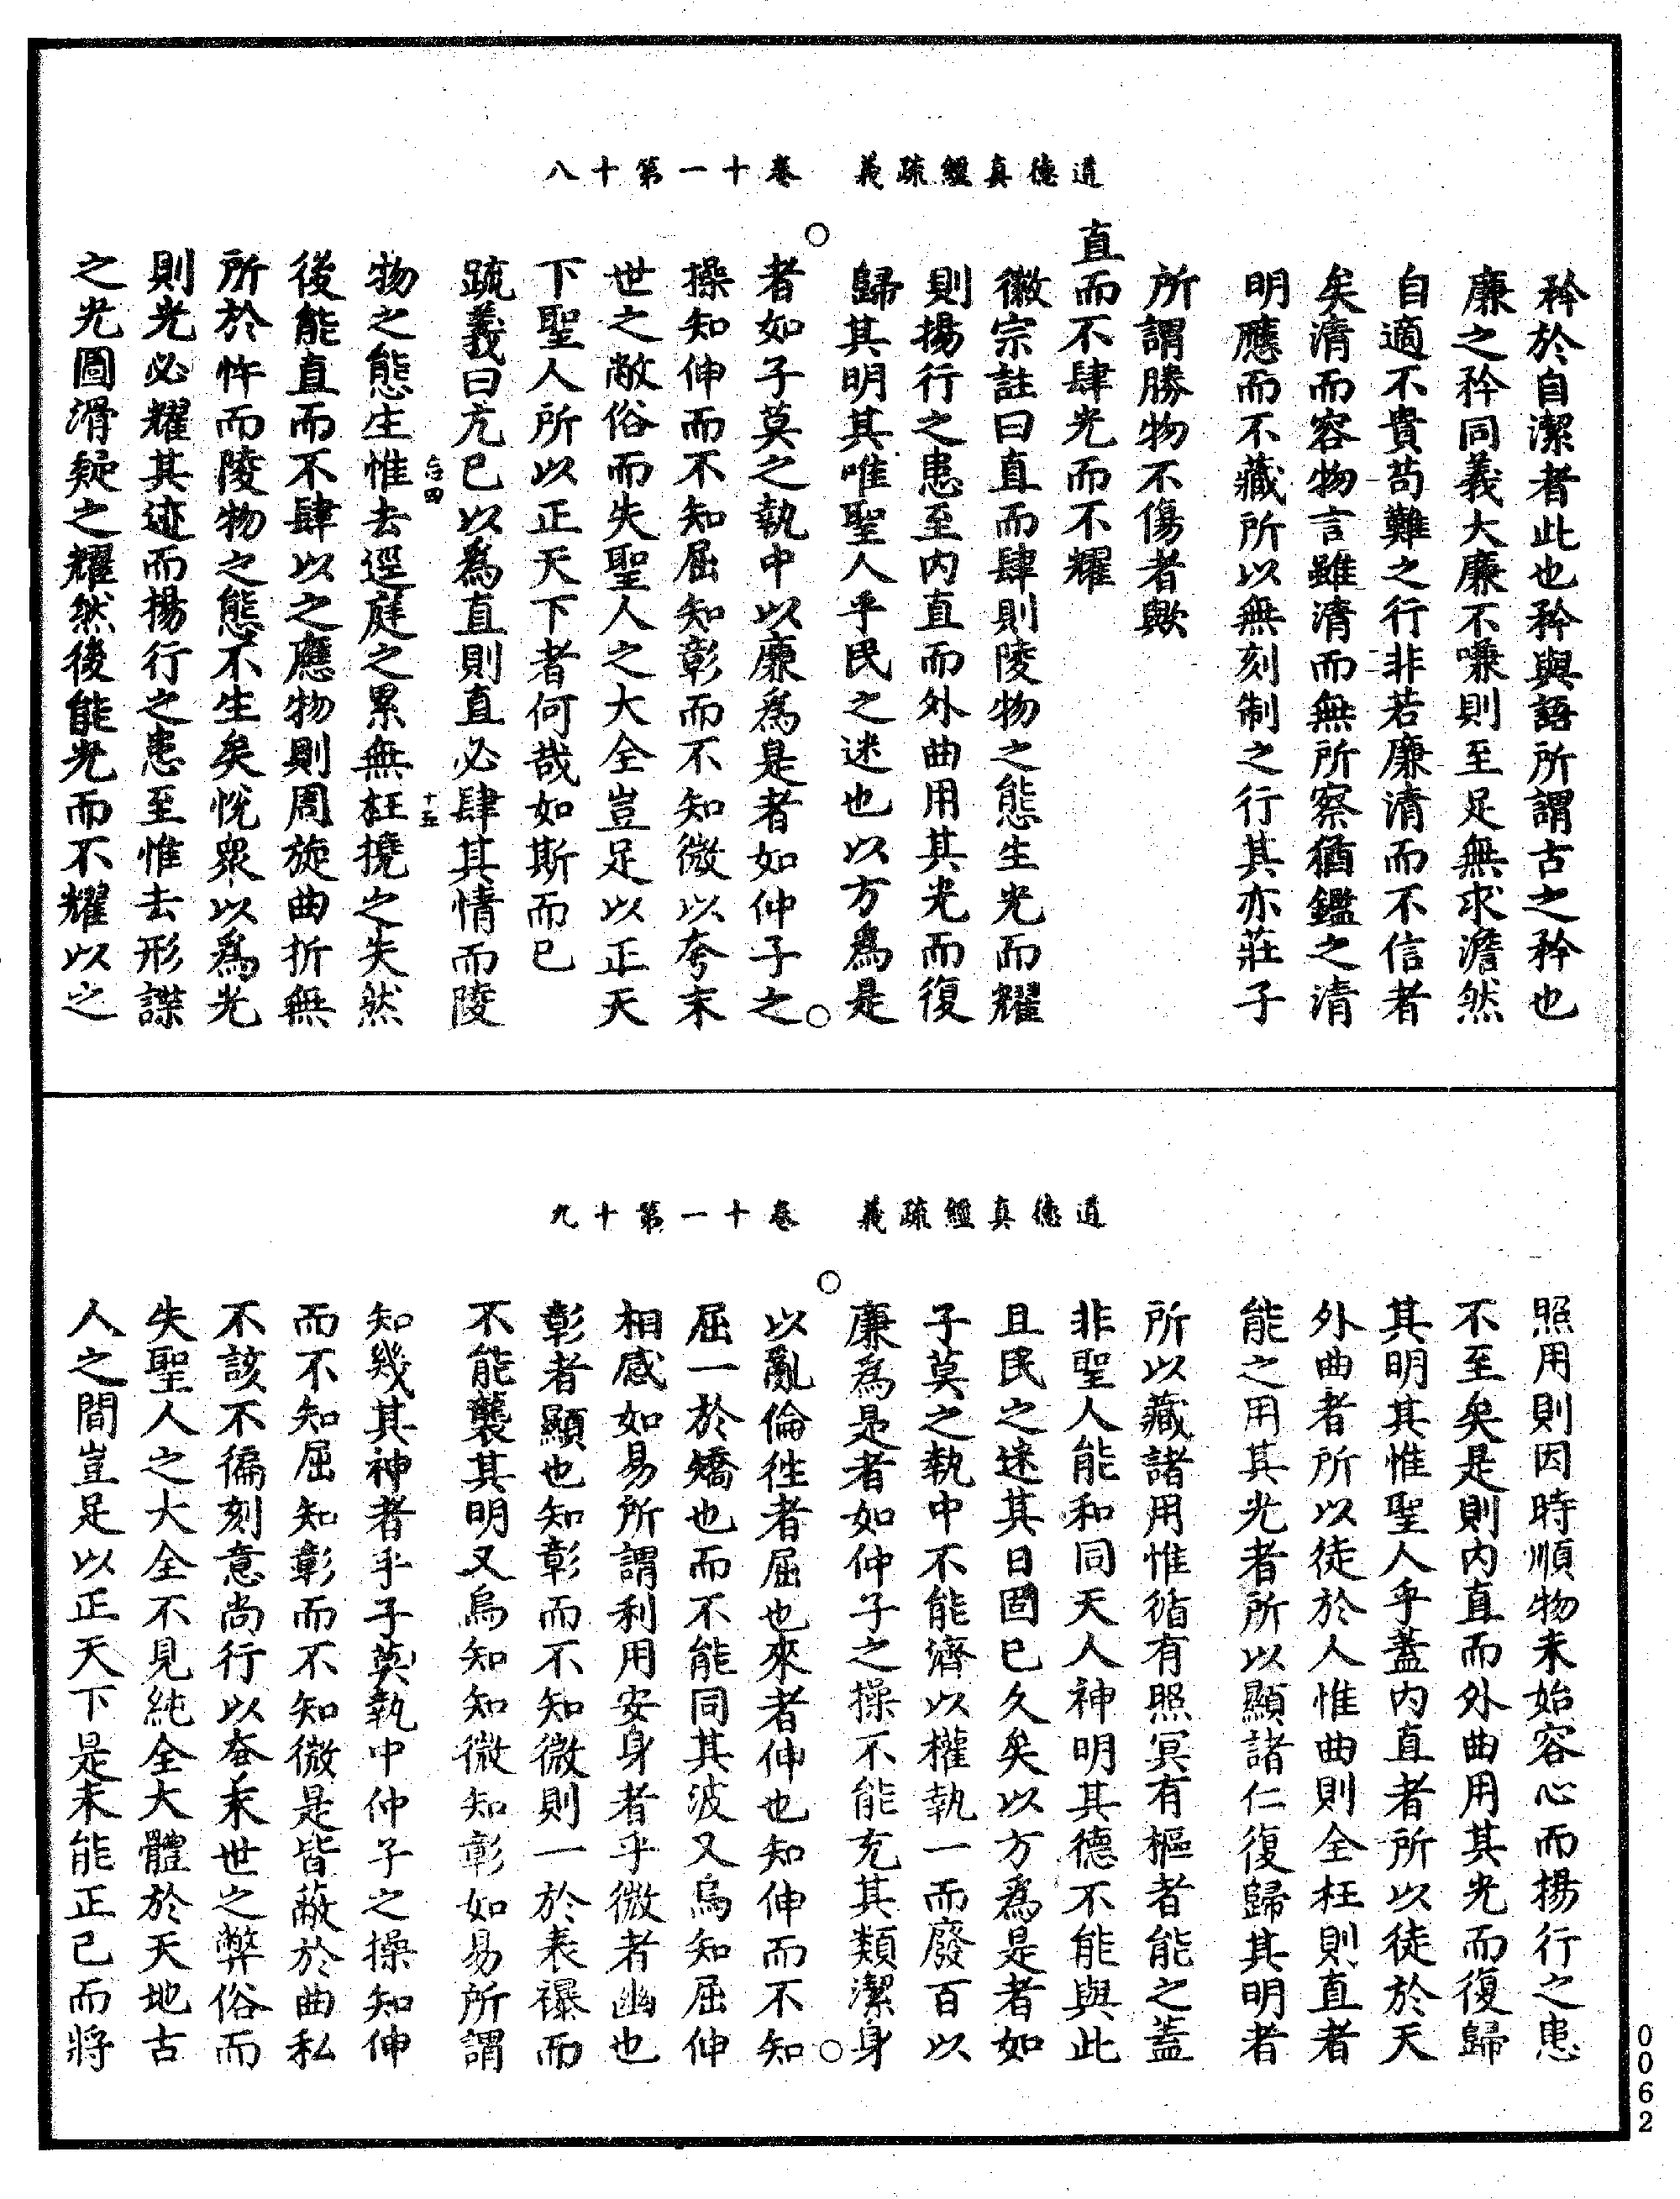 道德真經疏義　卷十一第十八
矜於自潔者此也矜與語所謂古之矜也
廉之矜同義大廉不嗛則至足無求澹然
自適不貴苟難之行非若廉清而不信者
矣清而容物言雖清而無所察猶鑑之清
明應而不藏所以無刻制之行其亦莊子
所謂勝物不傷者歟
直而不肆光而不耀
徽宗註曰直而肆則陵物之態生光而耀
則揚行之患至内直而外曲用其光而復
歸其明其唯聖人乎民之迷也以方爲是
者如子莫之執中以廉爲是者如仲子之
操知伸而不知屈知彰而不知微以夸末
世之敝俗而失聖人之大全豈足以正天
下聖人所以正天下者何哉如斯而已
疏義曰亢已以爲直則直必肆其情而陵
物之態生惟去逕庭之累無枉撓之失然
十五
後能直而不肆以之應物則周旋曲折無
所於忤而陵物之態不生矣恱衆以爲光
則光必耀其迹而揚行之患至惟去形諜
之光圖滑疑之耀然後能光而不耀以之
道德真經疏義　卷十一第十九
照用則因時順物未始容心而揚行之患
不至矣是則内直而外曲用其光而復歸
其明其惟聖人乎蓋内直者所以徒於天
外曲者所以徒於人惟曲則全枉則直者
能之用其光者所以顯諸仁復歸其明者
所以藏諸用惟循有照冥有樞者能之蓋
非聖人能和同天人神明其德不能與此
且民之迷其日固已久矣以方爲是者如
子莫之執中不能濟以權執一而廢百以
廉為是者如仲子之操不能充其類潔身
以亂倫徃者屈也來者伸也知伸而不知
屈一於矯也而不能同其波又烏知屈伸
相感如易所謂利用安身者乎微者幽也
彰者顯也知彰而不知微則一於表襮而
不能襲其明又烏知知微知彰如易所謂
知幾其神者乎子莫執中仲子之操知伸
而不知屈知彰而不知微是皆蔽於曲私
不該不徧刻意尚行以夸末世之弊俗而
失聖人之大全不見純全大體於天地古
人之間豈足以正天下是未能正已而將
0062